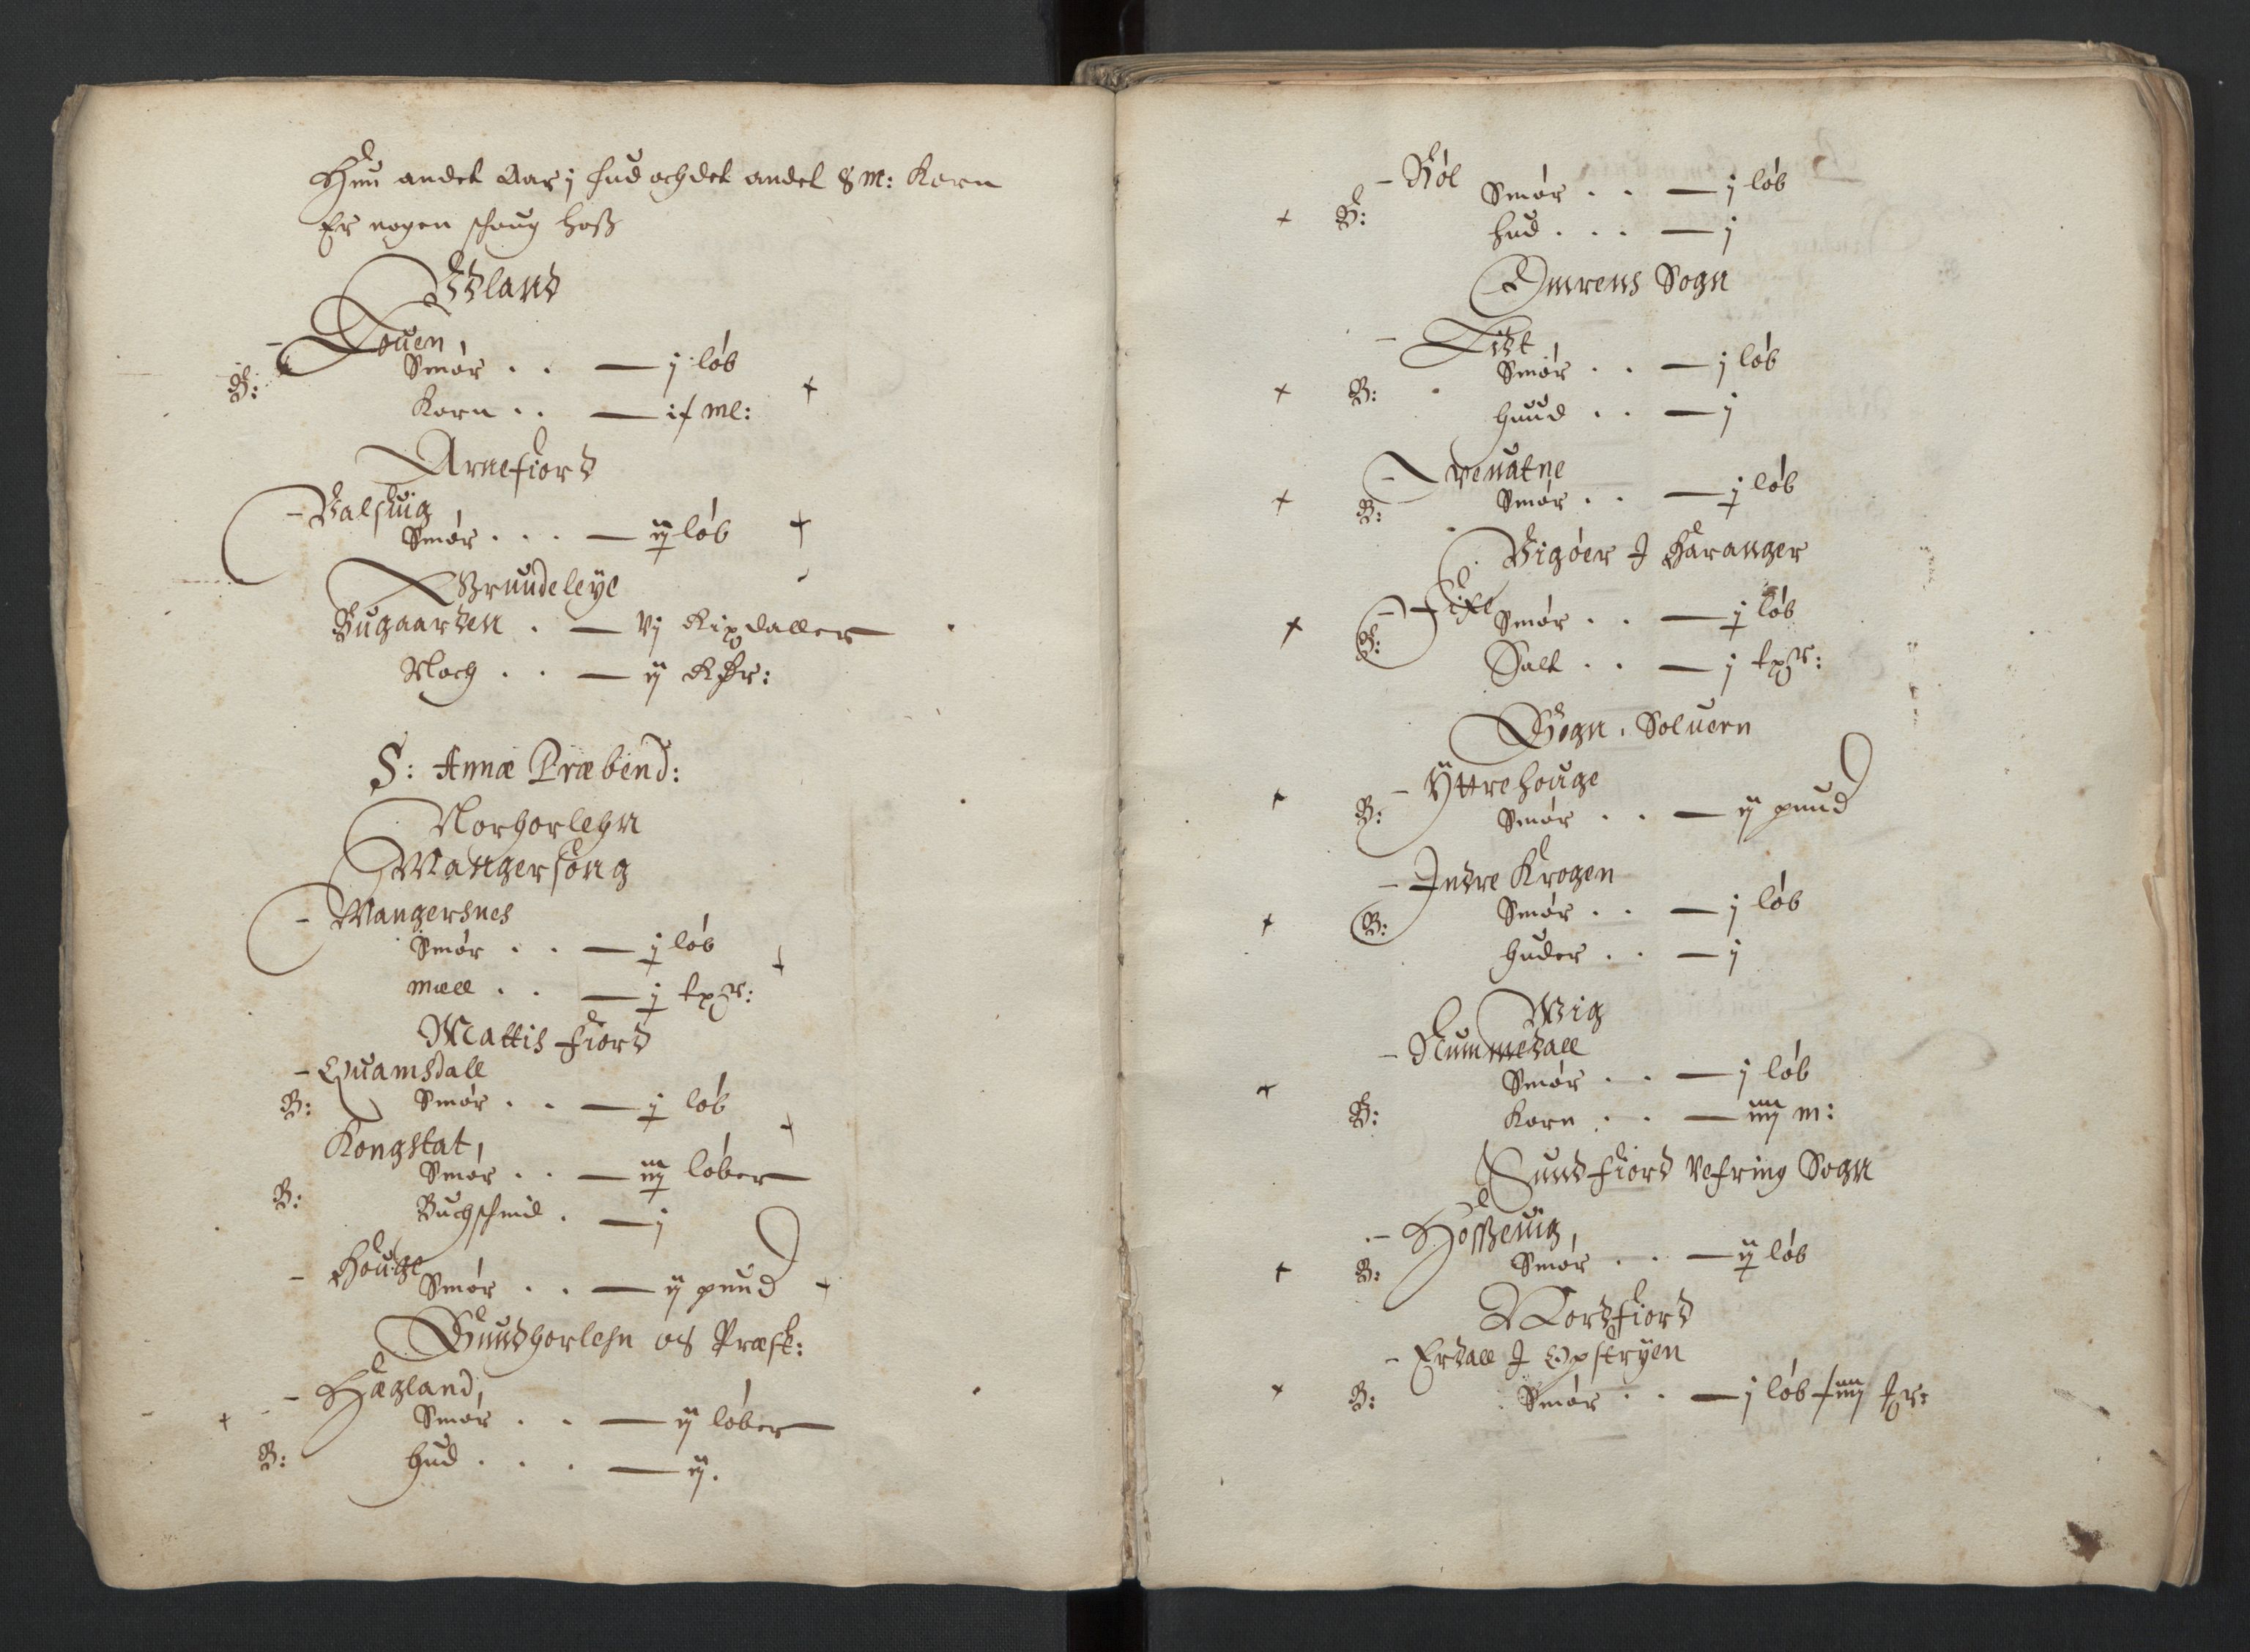 Huu andet Aar j hud och det andet 8 m: Korn
Er nogen schoug hoß
Ißland
- Touen,
B: Smør . . — j løb
Korn . . — ij ml: +
Arnefiord
- Valsuig
Smør . . . — ij løb +
Grundeleye
Bugaarden . — vj Rixdaller
Noch . . — ij Rdr:
S: Annæ Præbend:
Norhorlehn
Mangersong
- Mangersnes
Smør . . — j løb
mæll . . — j tpr: +
Mattis fiord
- Quamsdall
B: Smør . . — j løb
Kongstat, +
Smør . . — iij løber
B: Buchschind . — j
- Houge
Smør . . — ij pund +
Sundhorlehn os Præst:
- Hægland,
+ Smør . . — ij løber
B: hud . . . — ij.
- Køl
Smør . . — j løb
+ B: hud . . . — j
Omrens Sogn
- Tit
Smør . . — j løb
+ B: huud . . — j
- Treuatne
+ B: Smør . . — j løb
Vigøer I Haranger
- Fixe
+ B: Smør . . — j løb
Salt . . — j tpr:
Sogn. Soluern
- Yttrehouge
+ B: Smør . . — ij pund
- Indre Krogen
+ B: Smør . . — j løb
huder . . — j
Wig
- Nummedall
+ Smør . . — j løb
B: Korn . . — iiij m:
Sundfiord Vefring Sogn
- Hoßeuig,
+ B: Smør . . — ij løb
Nordfiord
- Erdall I Opstryen
+ B: Smør . . — j løb